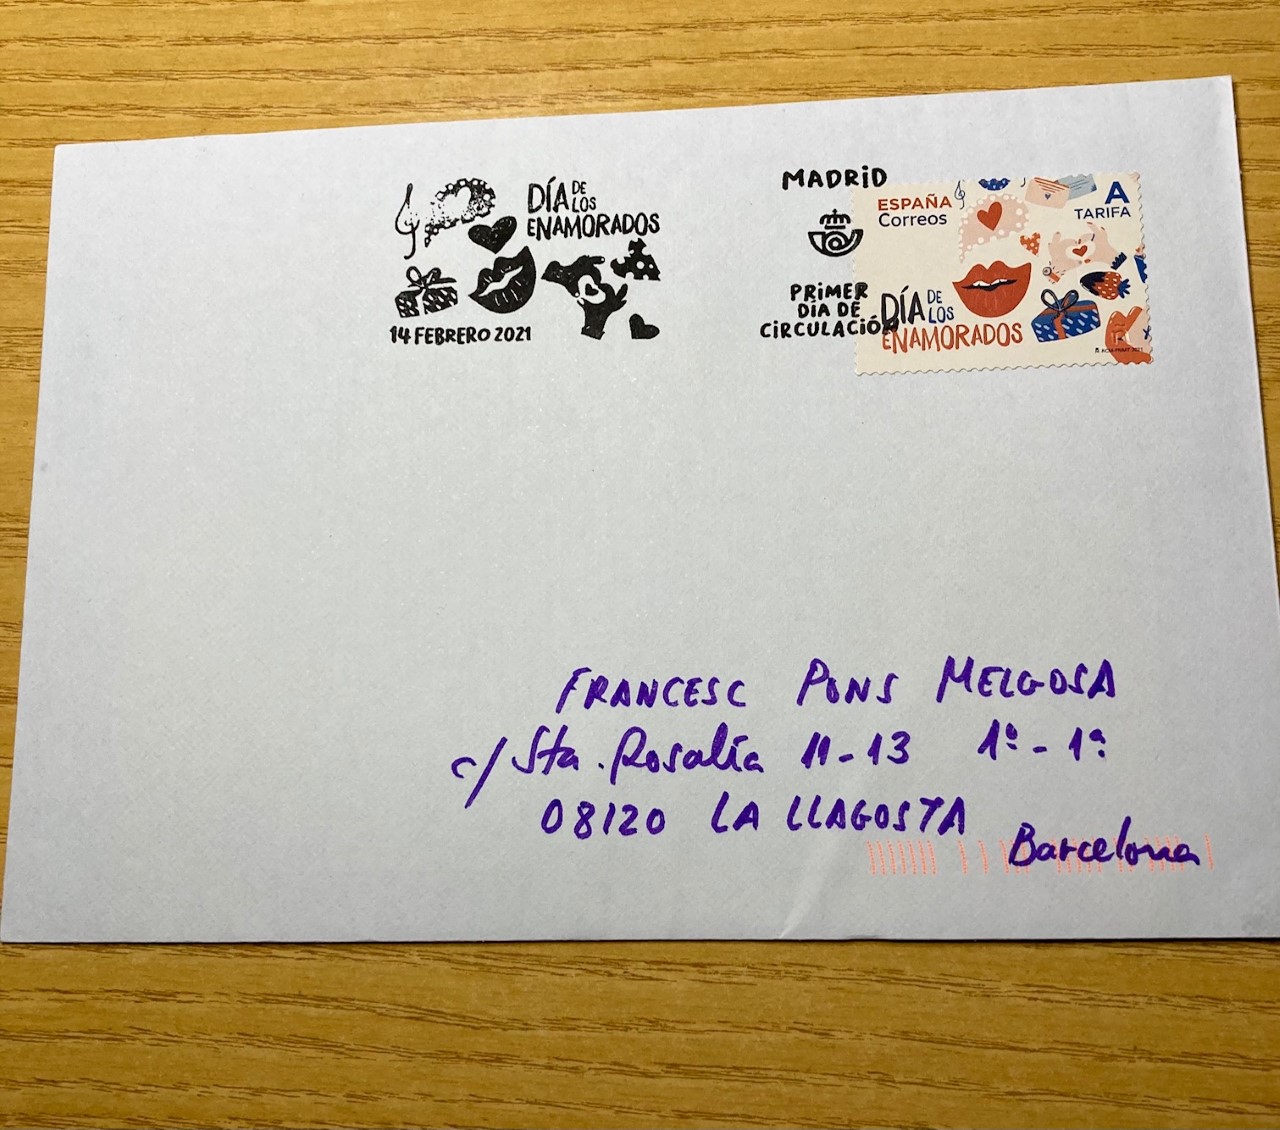 DÍA DE LOS
ENAMORADOS
14 FEBRERO 2021
MADRID
PRIMER
DIA DE
CIRCULACIÓN
ESPAÑA
Correos
A
TARIFA
DÍA DE LOS
ENAMORADOS
FRANCESC PONS MELGOSA
c/ Sta. Rosalía 11-13 1º-1ª
08120 LA LLAGOSTA
Barcelona